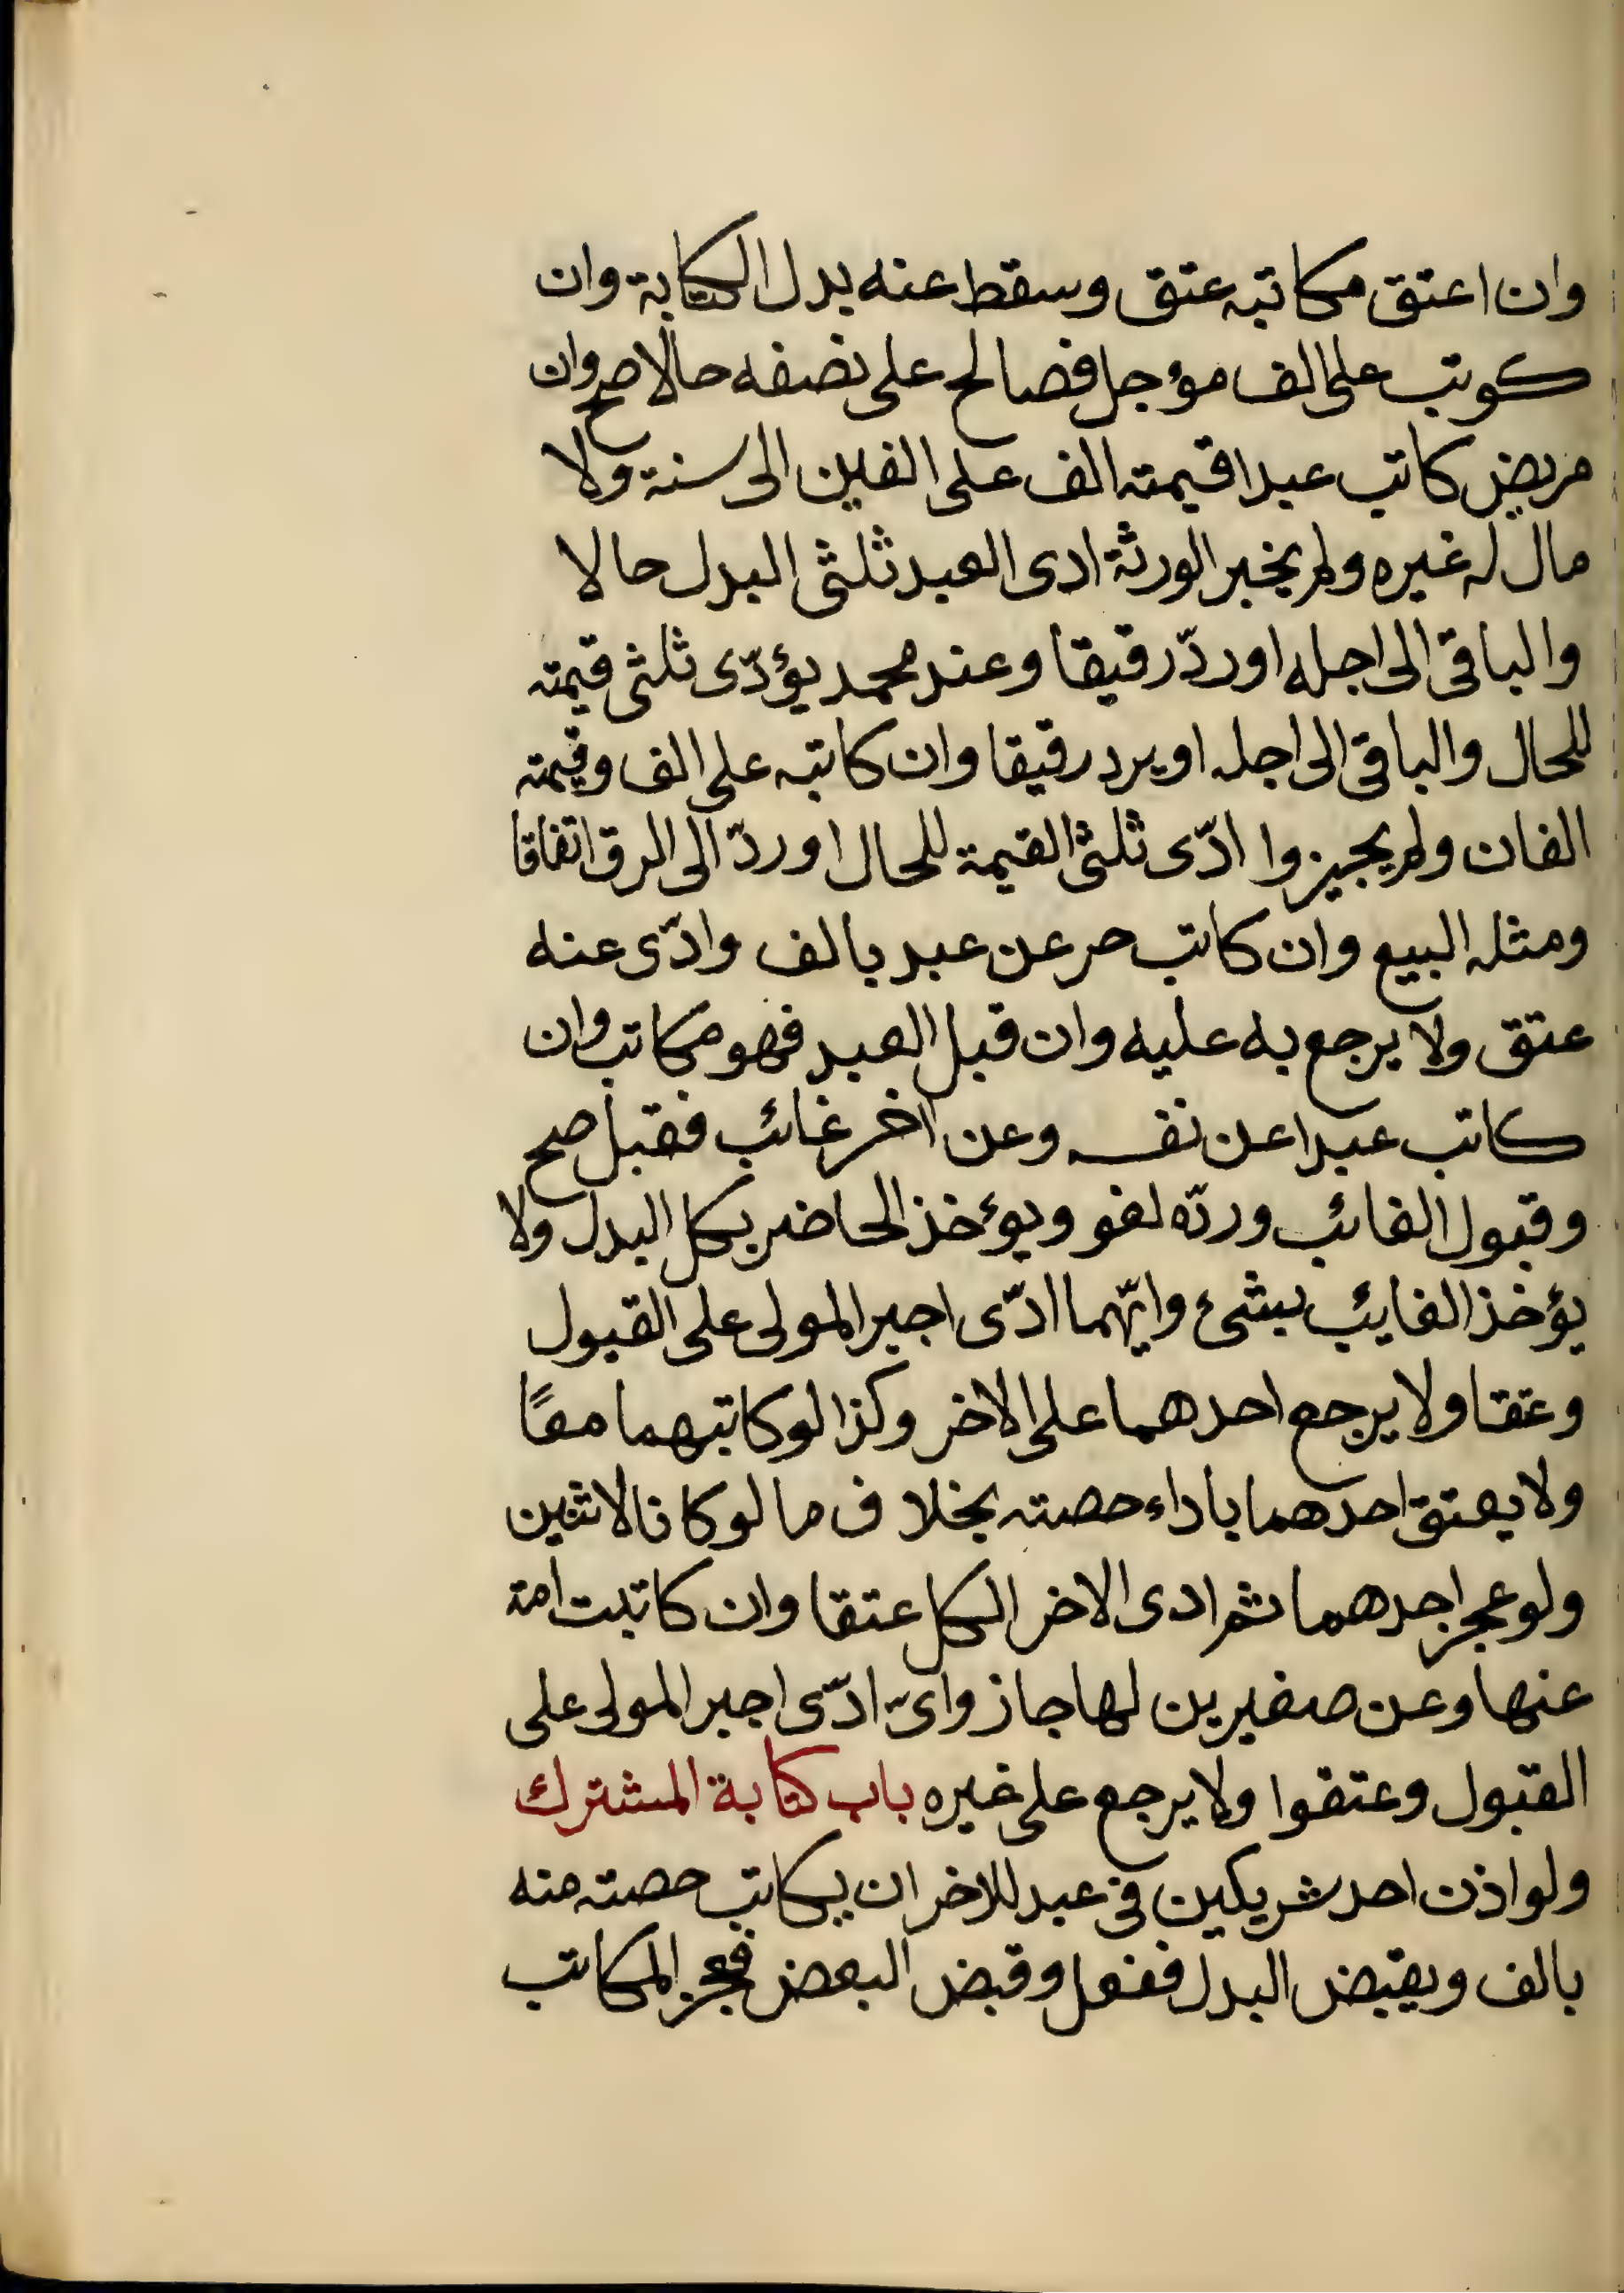 وان اعتق مكاتبه عتق وسقط عنه بدل الكتابة وان
كوتب على الف مؤجل فصالح على نصفه حالا صح وان
مريض كاتب عبدا قيمته الف على الفين الى سنة ولا
مال له غيره ولم يخبر الورثة ادى العبد ثلثى البدل حالا
والباقى الى اجله او ردّ رقيقا وعند محمد يؤدّى ثلثى قيمته
للحال والباقى الى اجله او يرد رقيقا وان كاتبه على الف وقيمته
الفان ولم يجيزوا ادّى ثلثى القيمة للحال او ردّ الى الرق اتفاقا
ومثله البيع وان كاتب حر عن عبد بالف وادّى عنه
عتق ولا يرجع به عليه وان قبل العبد فهو مكاتب وان
كاتب عبدا عن نفسه وعن اخر غائب فقبل صح
وقبول الغائب وردّه لغو ويؤخذ الحاضر بكل البدل ولا
يؤخذ الغايئب بشئ وايّهما ادّى اجبر المولى على القبول
وعتقا ولا يرجع احدهما على الاخر وكذا لو كاتبهما معًا
ولا يعتق احدهما باداء حصته بخلاف ما لو كانا لاثنين
ولو عجز احدهما ثم ادى الاخر الكل عتقا وان كاتبت امة
عنها وعن صغيرين لها جاز واىّ ادّى اجبر المولى على
القبول وعتقوا ولا يرجع على غيره باب كتابة المشترك
ولو اذن احد شريكين فى عبد للاخر ان يكاتب حصته منه
بالف ويقبض البدل ففعل وقبض البعض فعجز المكاتب